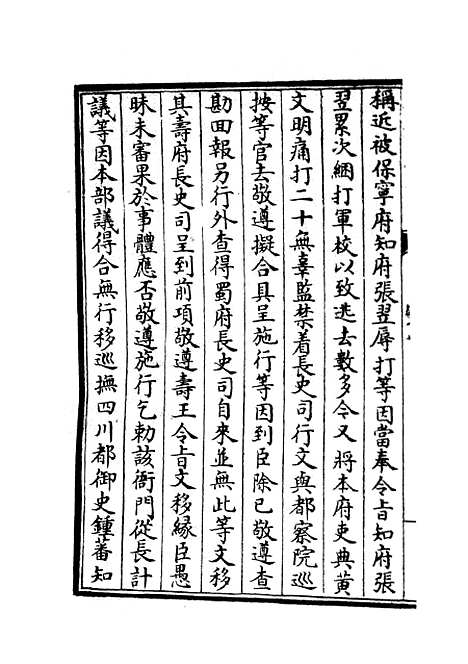 稱近被保寧府知府張翌辱打等因當奉令旨知府張
翌累次綑打軍校以致逃去數多今又將本府吏典黃
文明痛打二十無辜監禁着長史司行文與都察院巡
按等官去敬遵擬合具呈施行等因到臣除已敬遵查
勘回報另行外查得蜀府長史司自來並無此等文移
其壽府長史司呈到前項敬遵壽王令旨文移緣臣愚
昧未審果於事體應否敬遵施行乞勑該衙門從長計
議等因本部議得合無行移巡撫四川都御史鍾蕃知